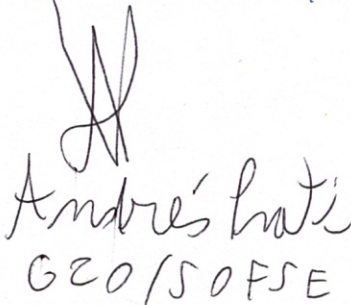 Andrés Prati
GZO/SOFSE